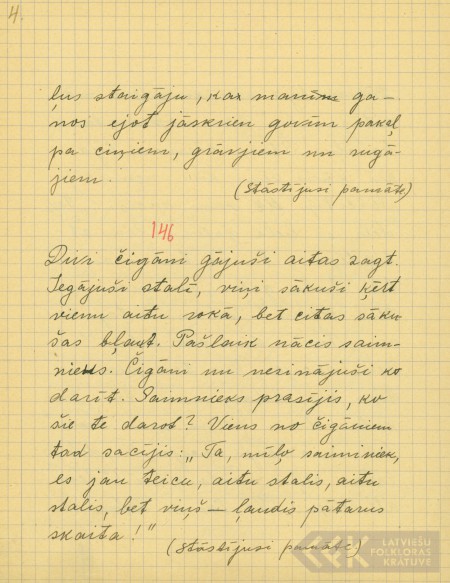 4.
ļus staigāju, kad manīm ga-
nos ejot jāskrien govīm pakaļ
pa ciņiem, grāvjiem un rugā-
jiem.
(Stāstījusi pamāte)
146
Divi čigāni gājuši aitas zagt.
Iegājuši stalī, viņi sākuši ķērt
vienu aitu rokā, bet citas sāku-
šas bļaut. Pašlaik nācis saim-
nieks. Čigāni nu nezinājuši ko
darīt. Saimnieks prasījis, ko
šie te darot? Viens no čigāniem
tad sacījis: „Ta, mīļo saiminiek,
es jau teicu, aitu stalis, aitu
stalis, bet viņš — ļaudis pātarus
skaita!"
(Stāstījusi pamāte)
LATVIEŠU
FOLKLORAS
KRĀTUVE